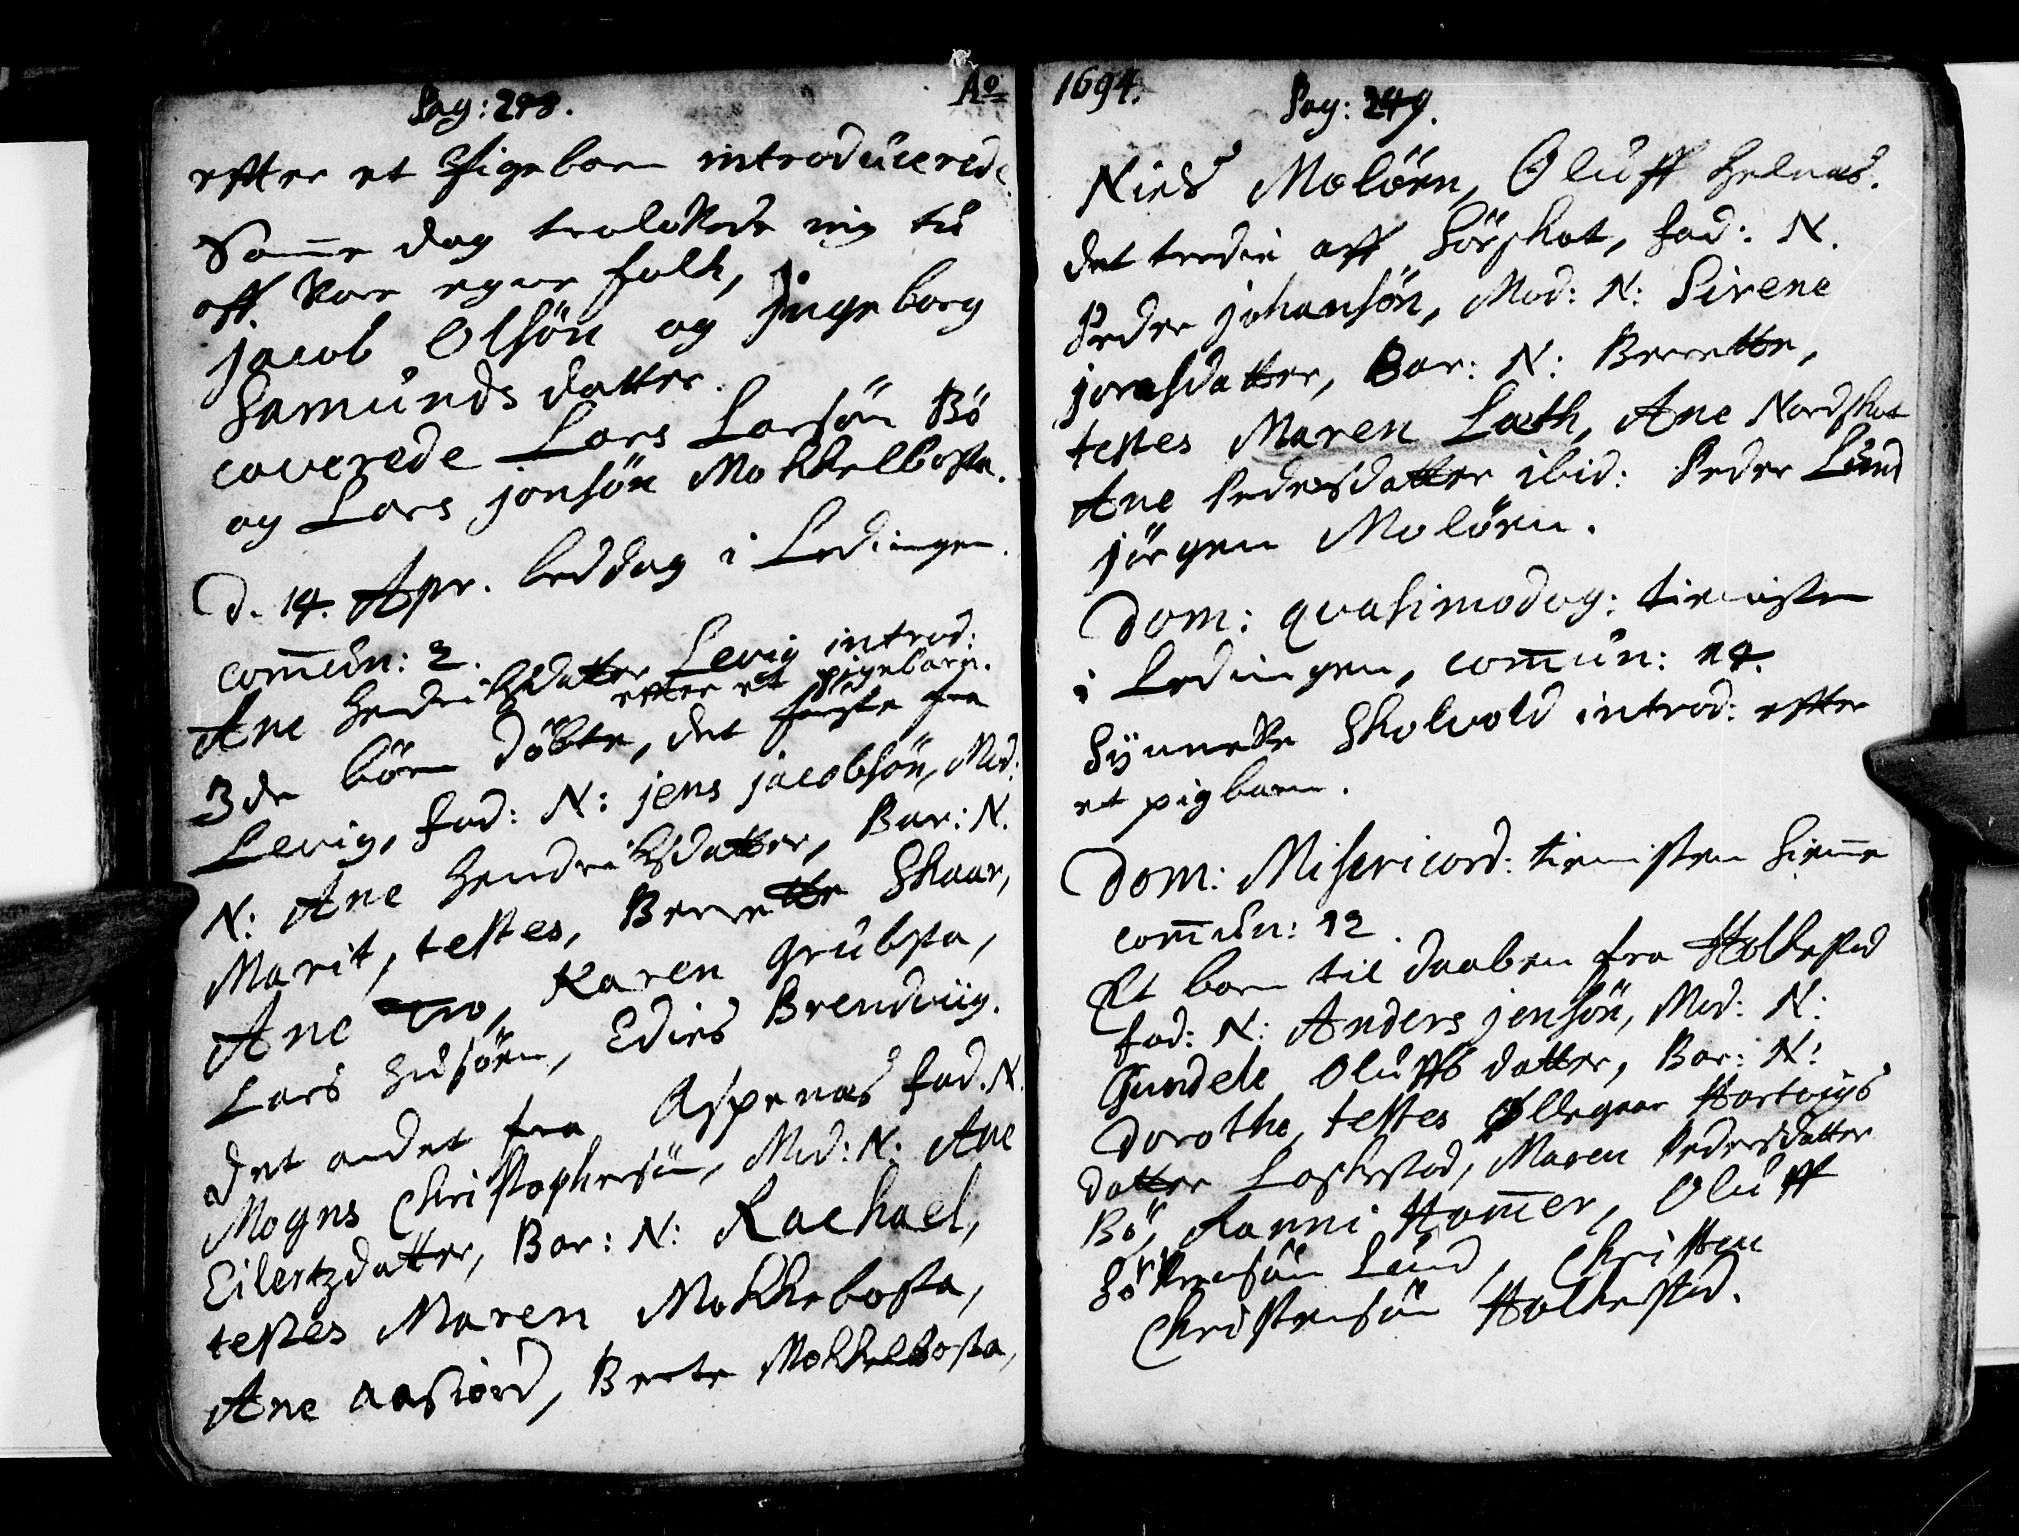 Pag: 248. Ao
efter et Pigebarn introducerede.
Same dag trolovede ieg tu
aff vore egne folk,
Jacob Olsön og Jngeborg
Samundsdatter.
caverede Lars Larsön Bö
og Lars jonsön Mokkelbosta.
D. 14. Apr. beddag i Lødingen.
comun: 2.
Ane Hendrichsdatter Levig introd:
efter et pigebarn.
3de börn döbte, det förste fra
Levig, fad: N: jens jacobsön, Mod:
N: Ane Hendrichsdatter, Bar: N.
Marit, testes, Berrette Skaar,
Ane Tro, Karen Grubsta,
Lars Husöen, Edies Brendviig.
Det andet fra Aspenes fad. N.
Mogns Christophersön, Mod: N: Ane
Eilertzdatter, Bar: N: Rachael,
testes Maren Mokkebosta,
Ane Aasiord, Berte Mokkelbosta,
1694. Pag: 249.
Niels Molöen, Oluff Helnes.
det tredie aff Sörskot, fad: N.
Peder johansön, Mod: N: Sirene
jonasdatter, Bar: N: Berrette,
testes Maren Lath, Ane Nordskot
Ane Pedersdatter ibid: Peder Lund
jörgen Molöen.
Dom: qvasimodog: tienisten
i Lødingen, comun: 14.
Synneve Skolvold introd: efter
et pigbarn.
Dom: Misericord: tienisten hieme
comun: 12
Et barn til daaben fra Holkestad
fad: N: Anders jensön, Mod: N:
Gundele Oluffsdatter, Bar: N:
Dorothe, testes Ollegaar Hartvigs
datter Laskestad, Maren Pedersdatter
Bö, Karini Hamer, Oluff
Sörrensön Lund, Christen
Christensön Holkestad.